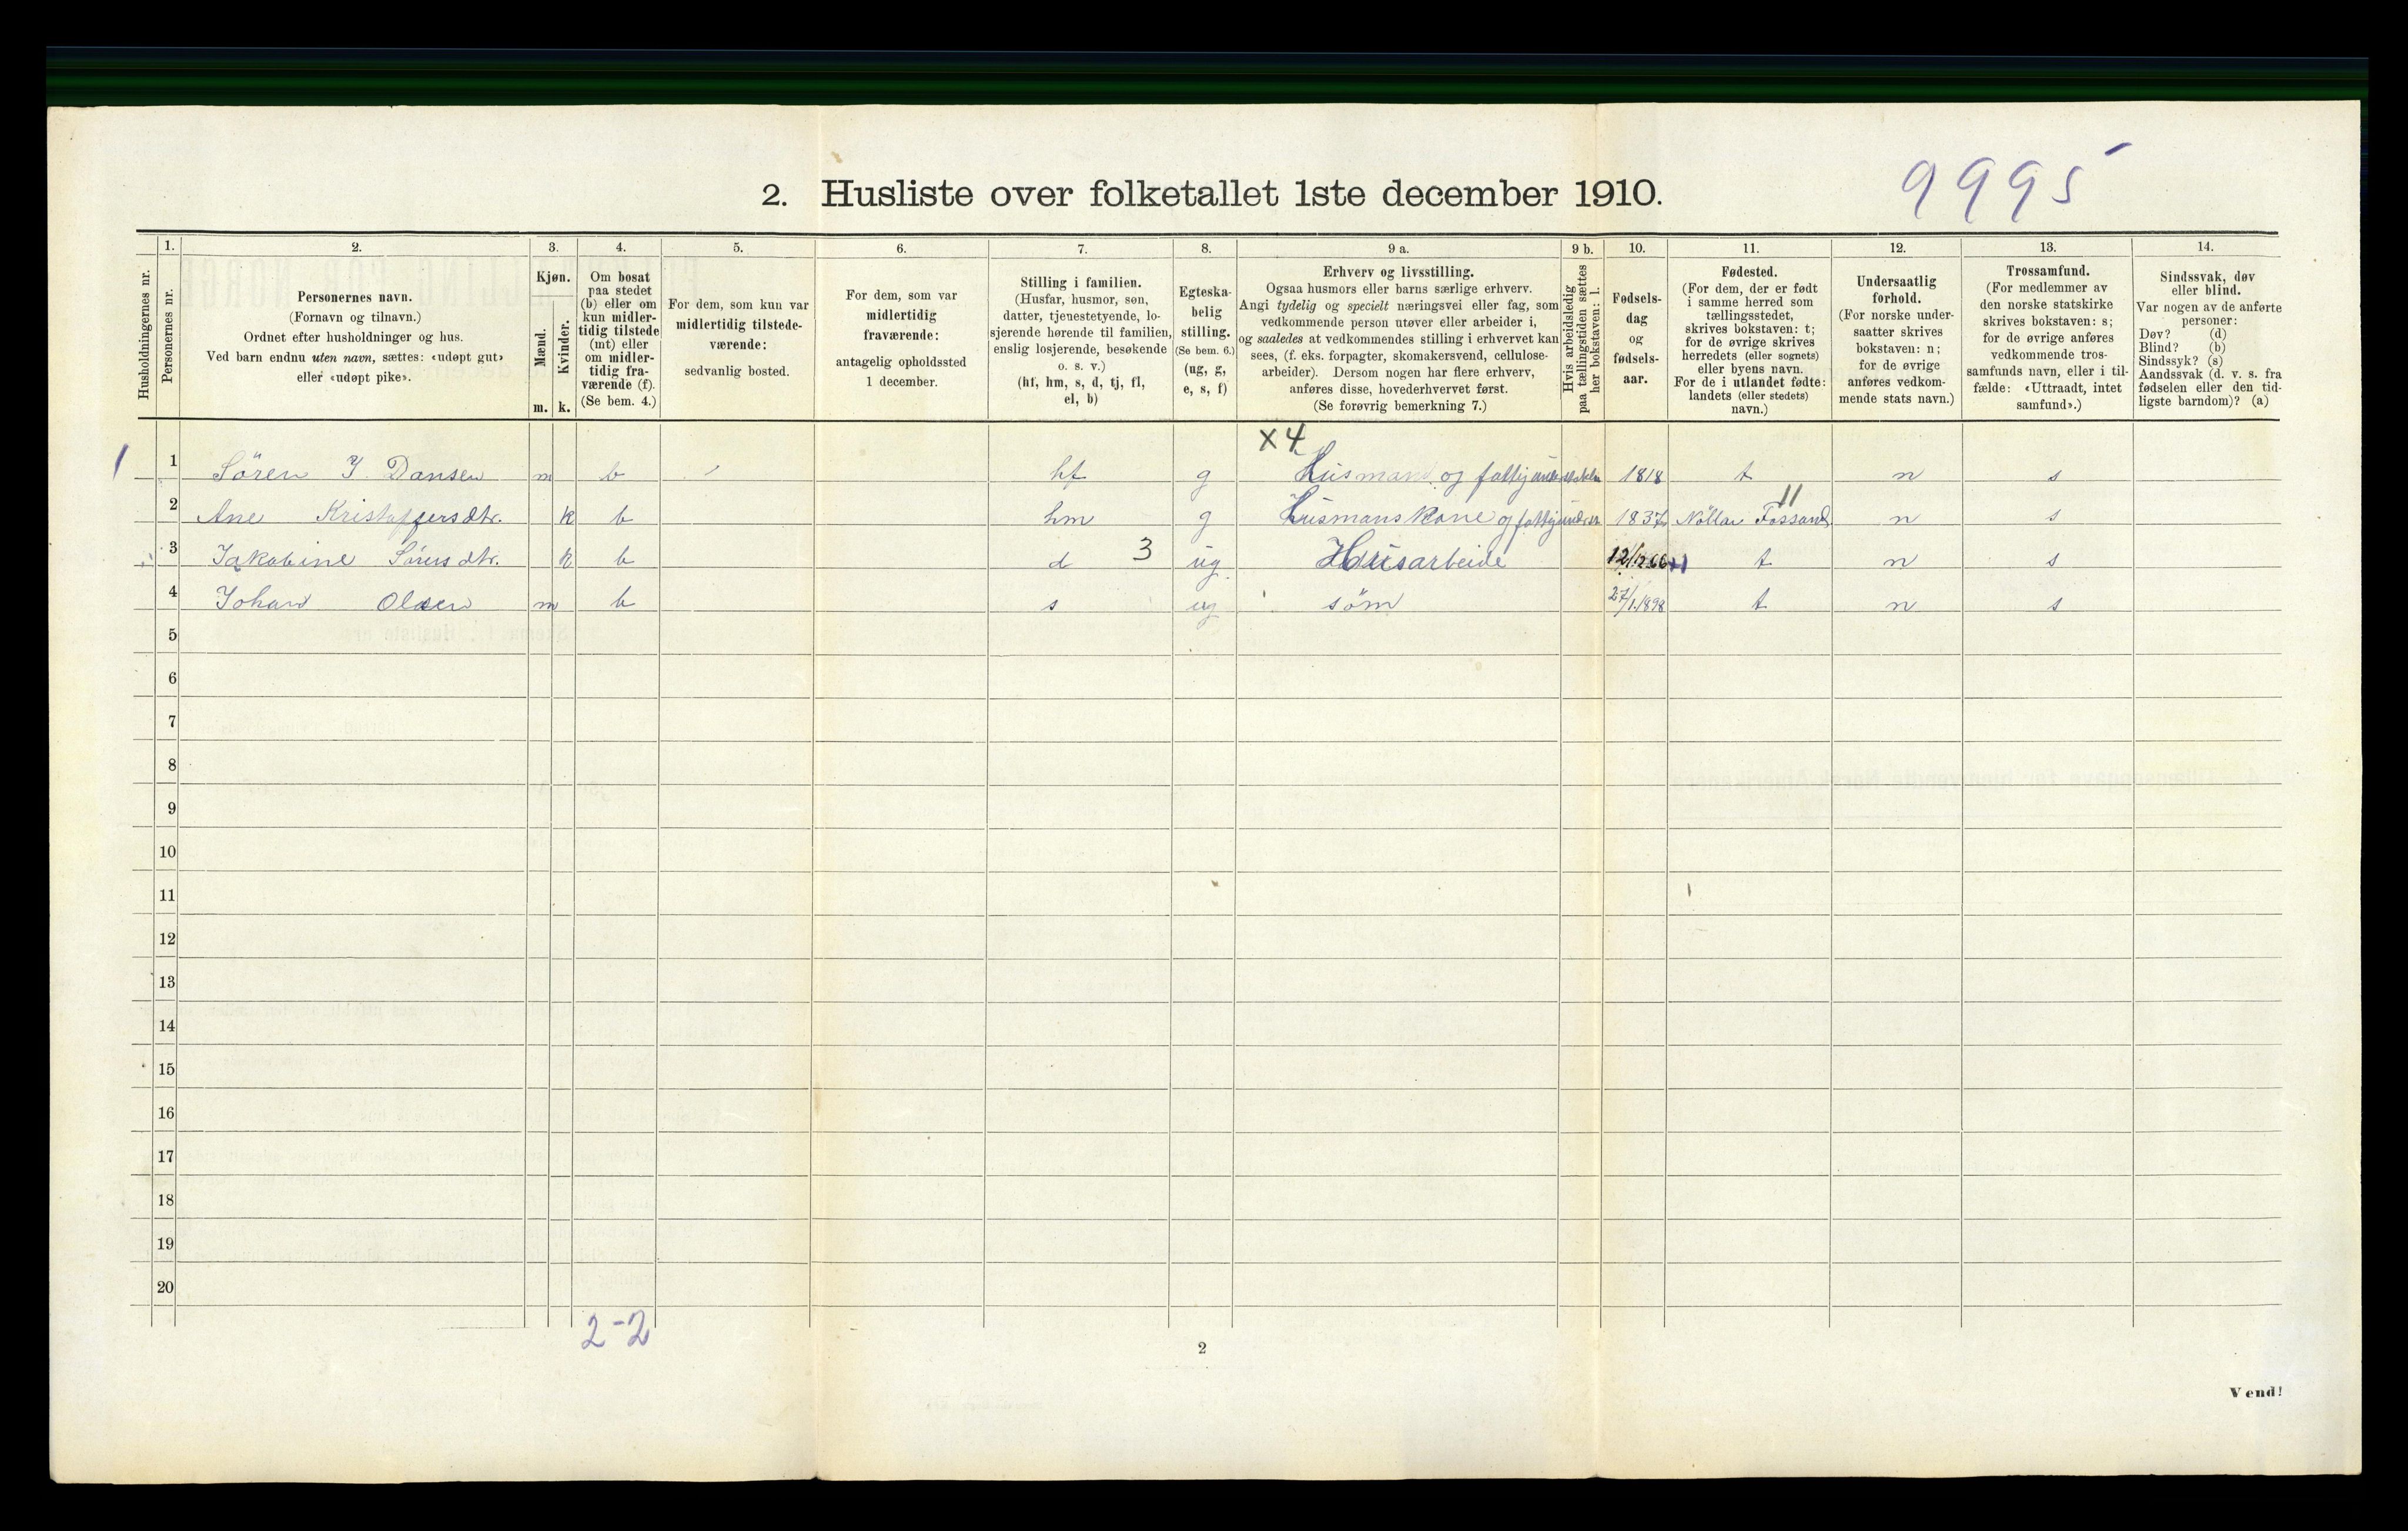 9995
2. Husliste over folketallet 1ste december 1910.
Husholdningernes nr.
1.
Personernes nr.
2.
Personernes navn.
(Fornavn og tilnavn.)
Ordnet efter husholdninger og hus.
Ved barn endnu uten navn, sættes: «udøpt gut»
eller «udøpt pike».
3.
Kjøn.
Mænd.
Kvinder.
m. k.
4.
Om bosat
paa stedet
(b) eller om
kun midler-
tidig tilstede
(mt) eller
om midler-
tidig fra-
værende (f).
(Se bem. 4.)
5.
For dem, som kun var
midlertidig tilstede-
værende:
sedvanlig bosted.
6.
For dem, som var
midlertidig
fraværende:
antagelig opholdssted
1 december.
7.
Stilling i familien.
(Husfar, husmor, søn,
datter, tjenestetyende, lo-
sjerende hørende til familien,
enslig losjerende, besøkende
o. s. v.)
(hf, hm, s, d, tj, fl,
el, b)
8.
Egteska-
belig
stilling.
(Se bem. 6.)
(ug, g,
e, s, f)
9 a.
Erhverv og livsstilling.
Ogsaa husmors eller barns særlige erhverv.
Angi tydelig og specielt næringsvei eller fag, som
vedkommende person utøver eller arbeider i,
og saaledes at vedkommendes stilling i erhvervet kan
sees, (f. eks. forpagter, skomakersvend, cellulose-
arbeider). Dersom nogen har flere erhverv,
anføres disse, hovederhvervet først.
(Se forøvrig bemerkning 7.)
9 b.
Hvis arbeidsledig
paa tællingstiden sættes
her bokstaven: l.
10.
Fødsels-
dag
og
fødsels-
aar.
11.
Fødested.
(For dem, der er født
i samme herred som
tællingsstedet,
skrives bokstaven: t;
for de øvrige skrives
herredets (eller sognets)
eller byens navn.
For de i utlandet fødte:
landets (eller stedets)
navn.)
12.
Undersaatlig
forhold.
(For norske under-
saatter skrives
bokstaven: n;
for de øvrige
anføres vedkom-
mende stats navn.)
13.
Trossamfund.
(For medlemmer av
den norske statskirke
skrives bokstaven: s;
for de øvrige anføres
vedkommende tros-
samfunds navn, eller i til-
fælde: «Uttraadt, intet
samfund».)
14.
Sindssvak, døv
eller blind.
Var nogen av de anførte
personer:
Døv? (d)
Blind? (b)
Sindssyk? (s)
Aandssvak (d. v. s. fra
fødselen eller den tid-
ligste barndom)? (a)
x4
1 1 Sören J. Dansen m b hf g Husmand og 1818 t n s
11
2 Ane Kristoffersdtr. k b hm g Husmanskone og 1837 Fossand n s
3 Jakobine Sörensdtr. k b d 3 ug Husarbeide 12/12 66 t n s
4 Johan Olsen m b s ug söm 27/1.1898 t n s
5
6
7
8
9
10
11
12
13
14
15
16
17
18
19
20
2-2
2
Vend!